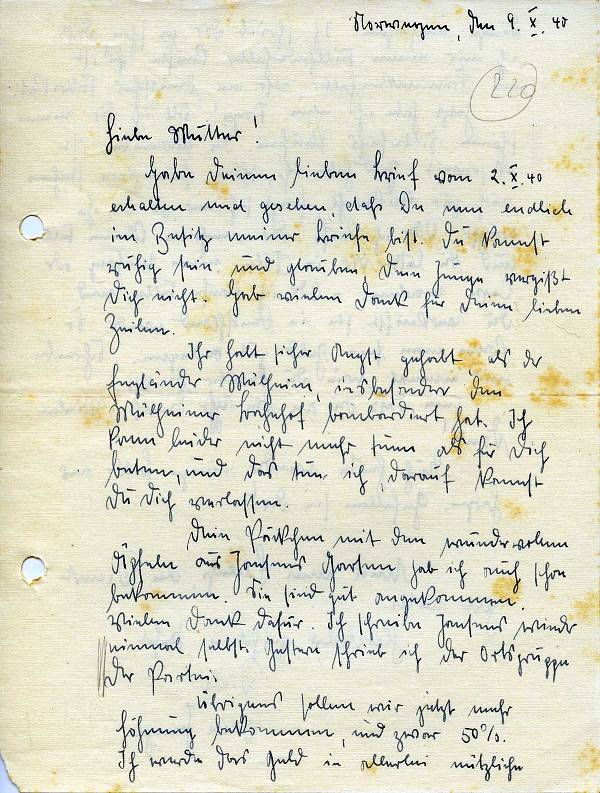 Norwegen, den 9. X. 40
220
Liebe Mutter!
Habe Deinen lieben Brief vom 2. X. 40
erhalten und gesehen, daß Du nun endlich
im Besitz meiner Briefe bist. Du kannst
ruhig sein und glauben, Dein Junge vergißt
Dich nicht. Hab vielen Dank für Deine lieben
Zeilen.
Ihr habt sicher Angst gehabt, als der
Engländer Mülheim, insbesondere den
Mülheimer Bahnhof bombardiert hat. Ich
kann leider nicht mehr tun als für Dich
beten, und das tue ich, darauf kannst
Du Dich verlassen.
Dein Päckchen mit den wundervollen
Äpfeln aus Jansens Garten hab ich auch schon
bekommen. Sie sind gut angekommen.
Vielen Dank dafür. Ich schreibe Jansens wieder
einmal selbst. Gestern schrieb ich der Ortsgruppe
der Partei.
Übrigens sollen wir jetzt mehr
Löhnung bekommen, und zwar 50%.
Ich werde das Geld in allerlei nützliche